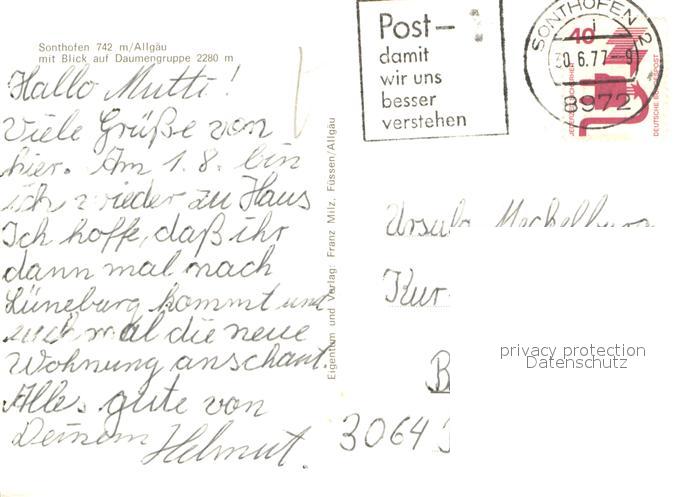 Sonthofen 742 m/Allgäu
mit Blick auf Daumengruppe 2280 m
Hallo Mutti!
Viele Grüße von
hier. Am 1.8. bin
ich wieder zu Haus
Ich hoffe, daß ihr
dann mal nach
Lüneburg kommt und
euch mal die neue
Wohnung anschaut.
Alles gute von
Deinem Helmut.
Eigentum und Verlag: Franz Milz, Füssen/Allgäu
Post-
damit
wir uns
besser
verstehen
SONTHOFEN 2
i
30.6.77-9
8972
40
JEDERZEIT SICHERHEIT
DEUTSCHE BUNDESPOST
Ursula
Kur
B
3064
privacy protection
Datenschutz